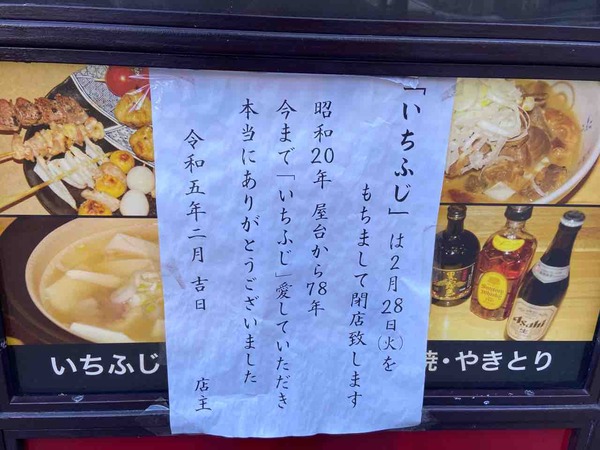 「いちふじ」は2月28日(火)を
もちまして閉店致します
昭和20年 屋台から78年
今まで「いちふじ」愛していただき
本当にありがとうございました
令和五年二月 吉日
店主
いちふじ
焼・やきとり
Asahi